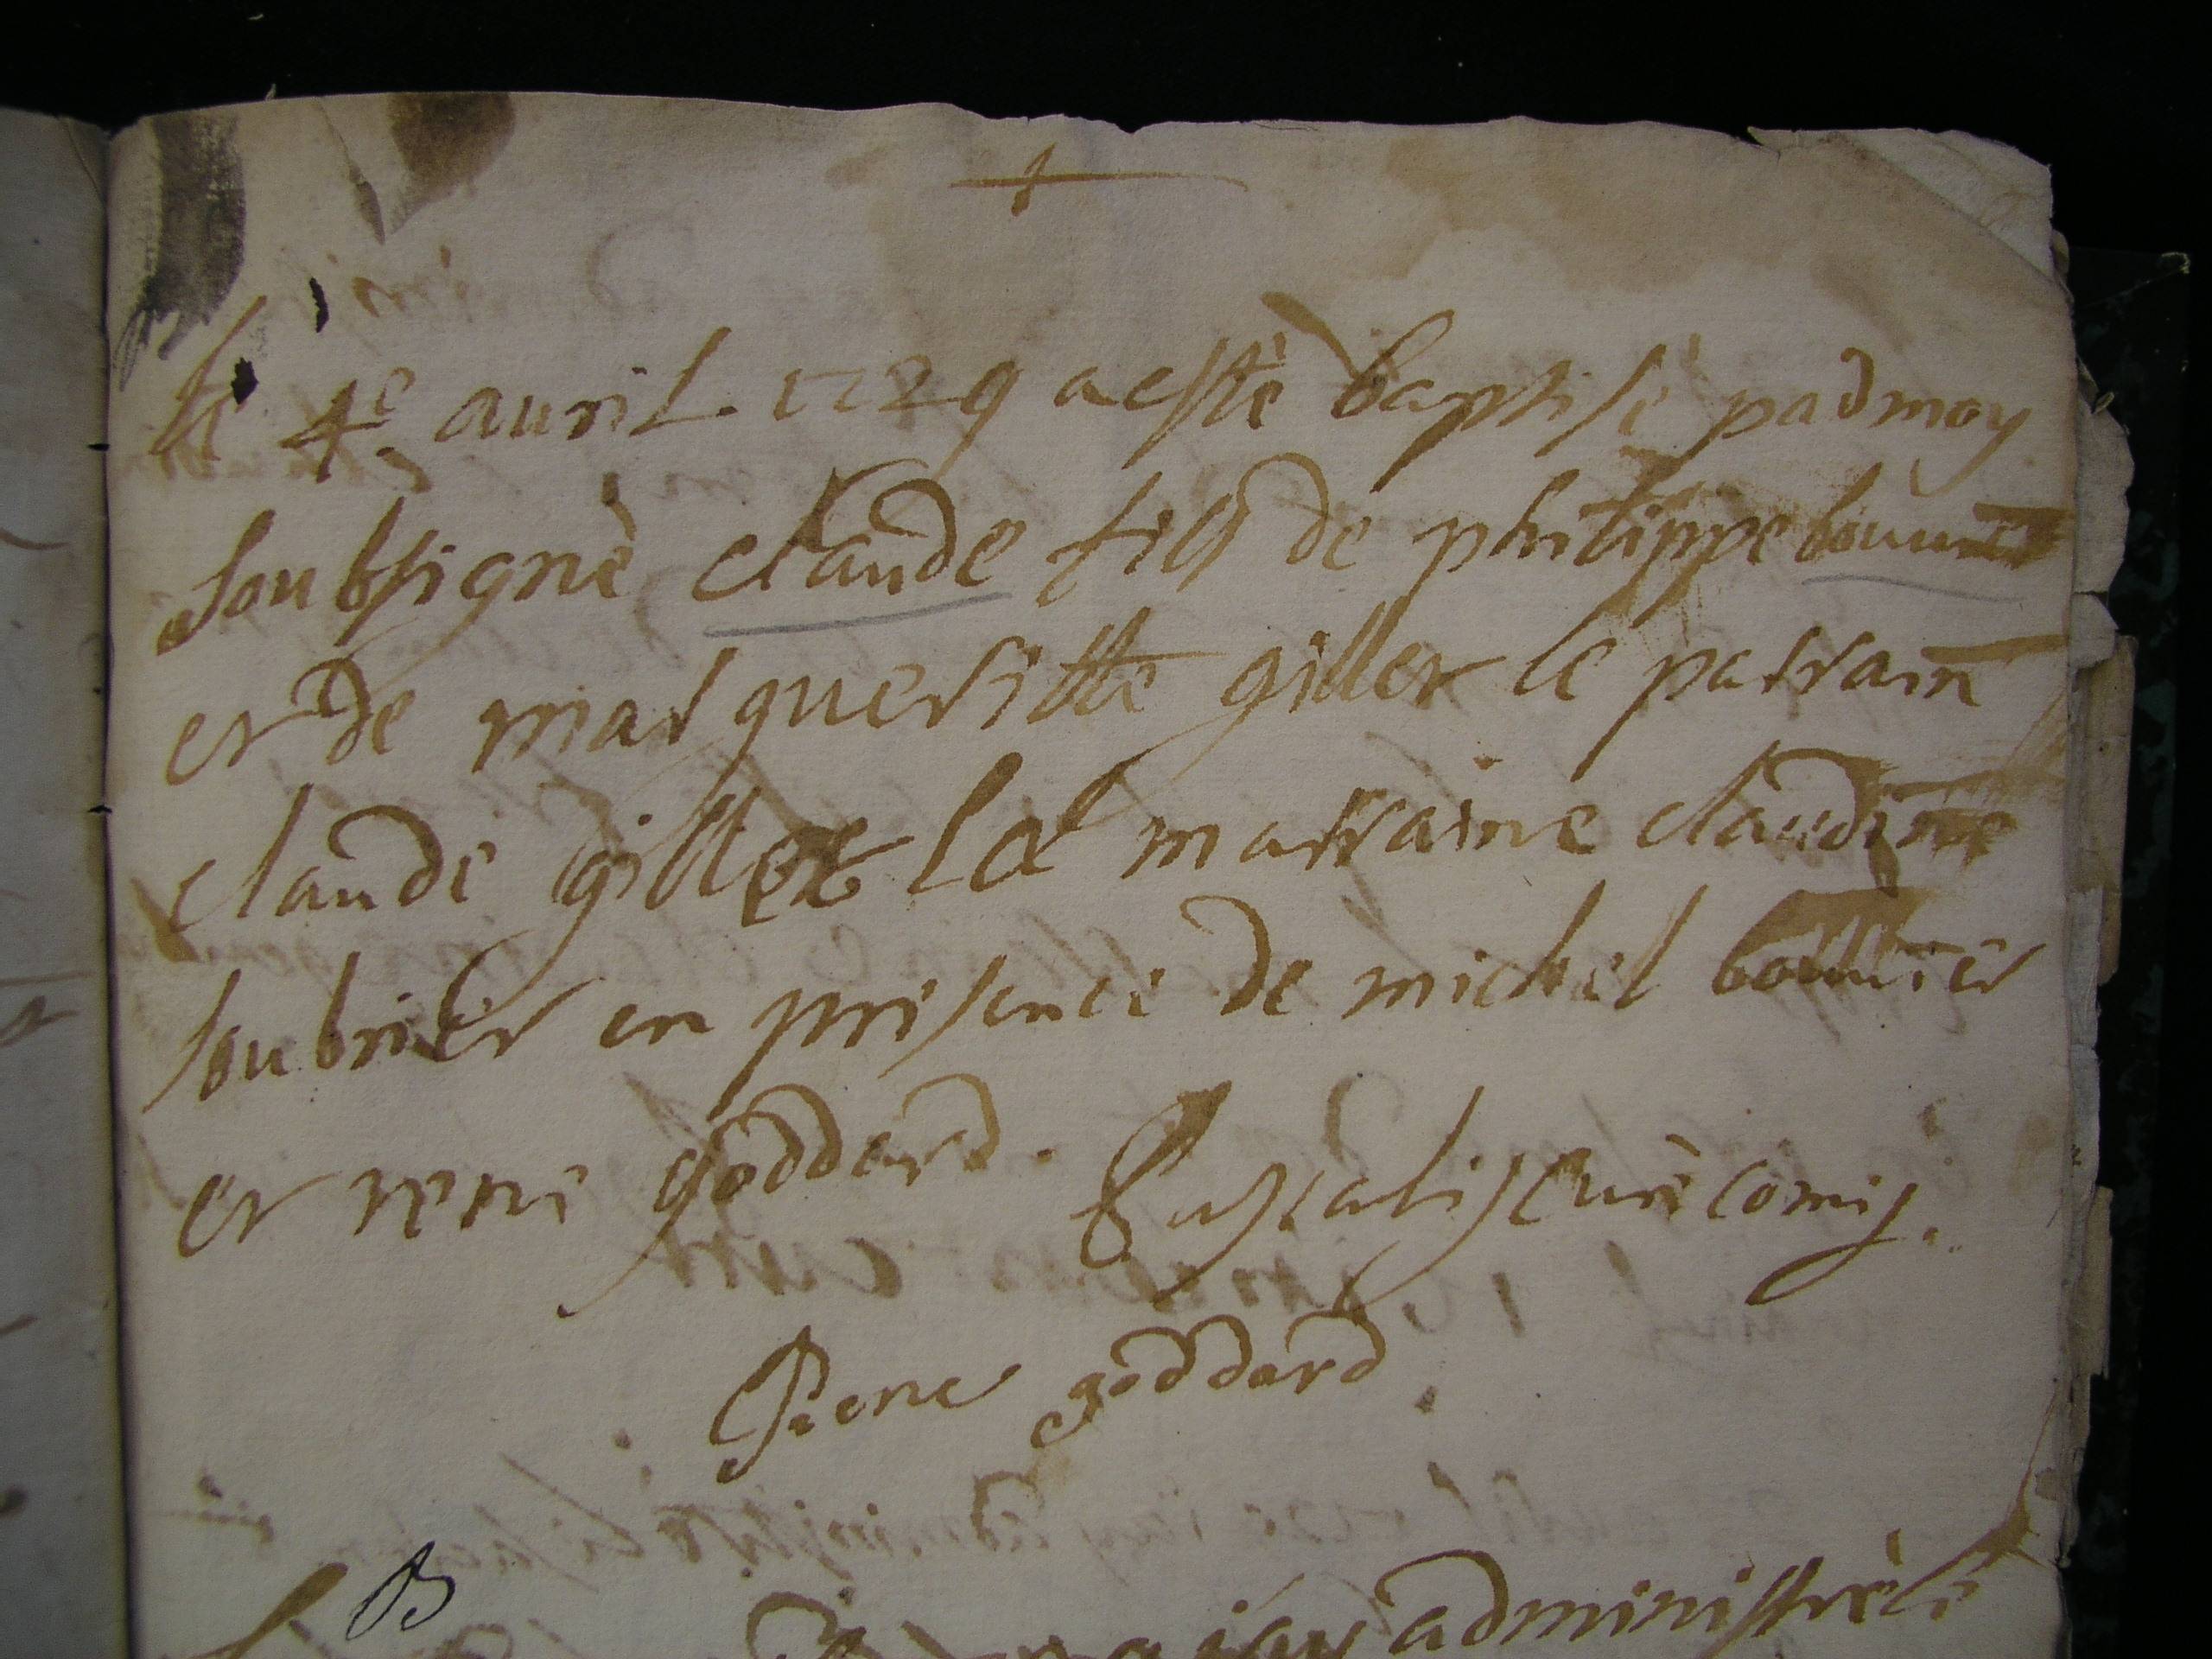 le 4e auril 1729 a esté baptisé par moy
soubsigné claude fils de philippe bouuier
et de margueritte gillet le parrain
claude gillet la marraine claudine
soubrier en présence de michel bouuier
et rene goddard. curé comis.
Rene goddard
B
administré le